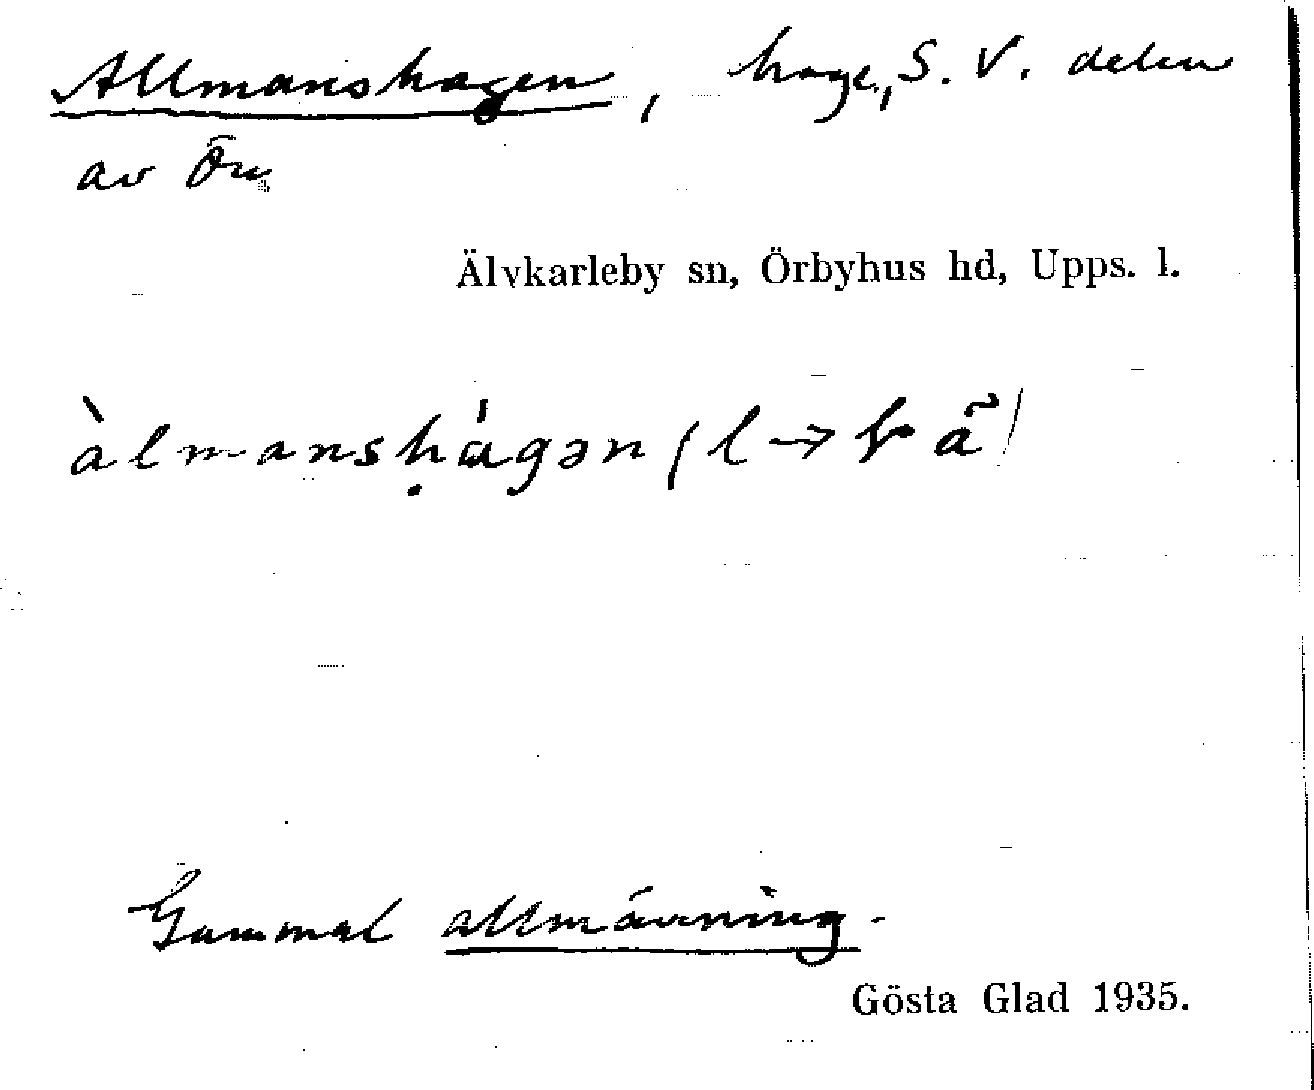 Allmanshagen, hage, S.V. delen
av Ön
Älvkarleby sn, Örbyhus hd, Upps. l.
àlmanshágən
Gammal allmänning.
Gösta Glad 1935.